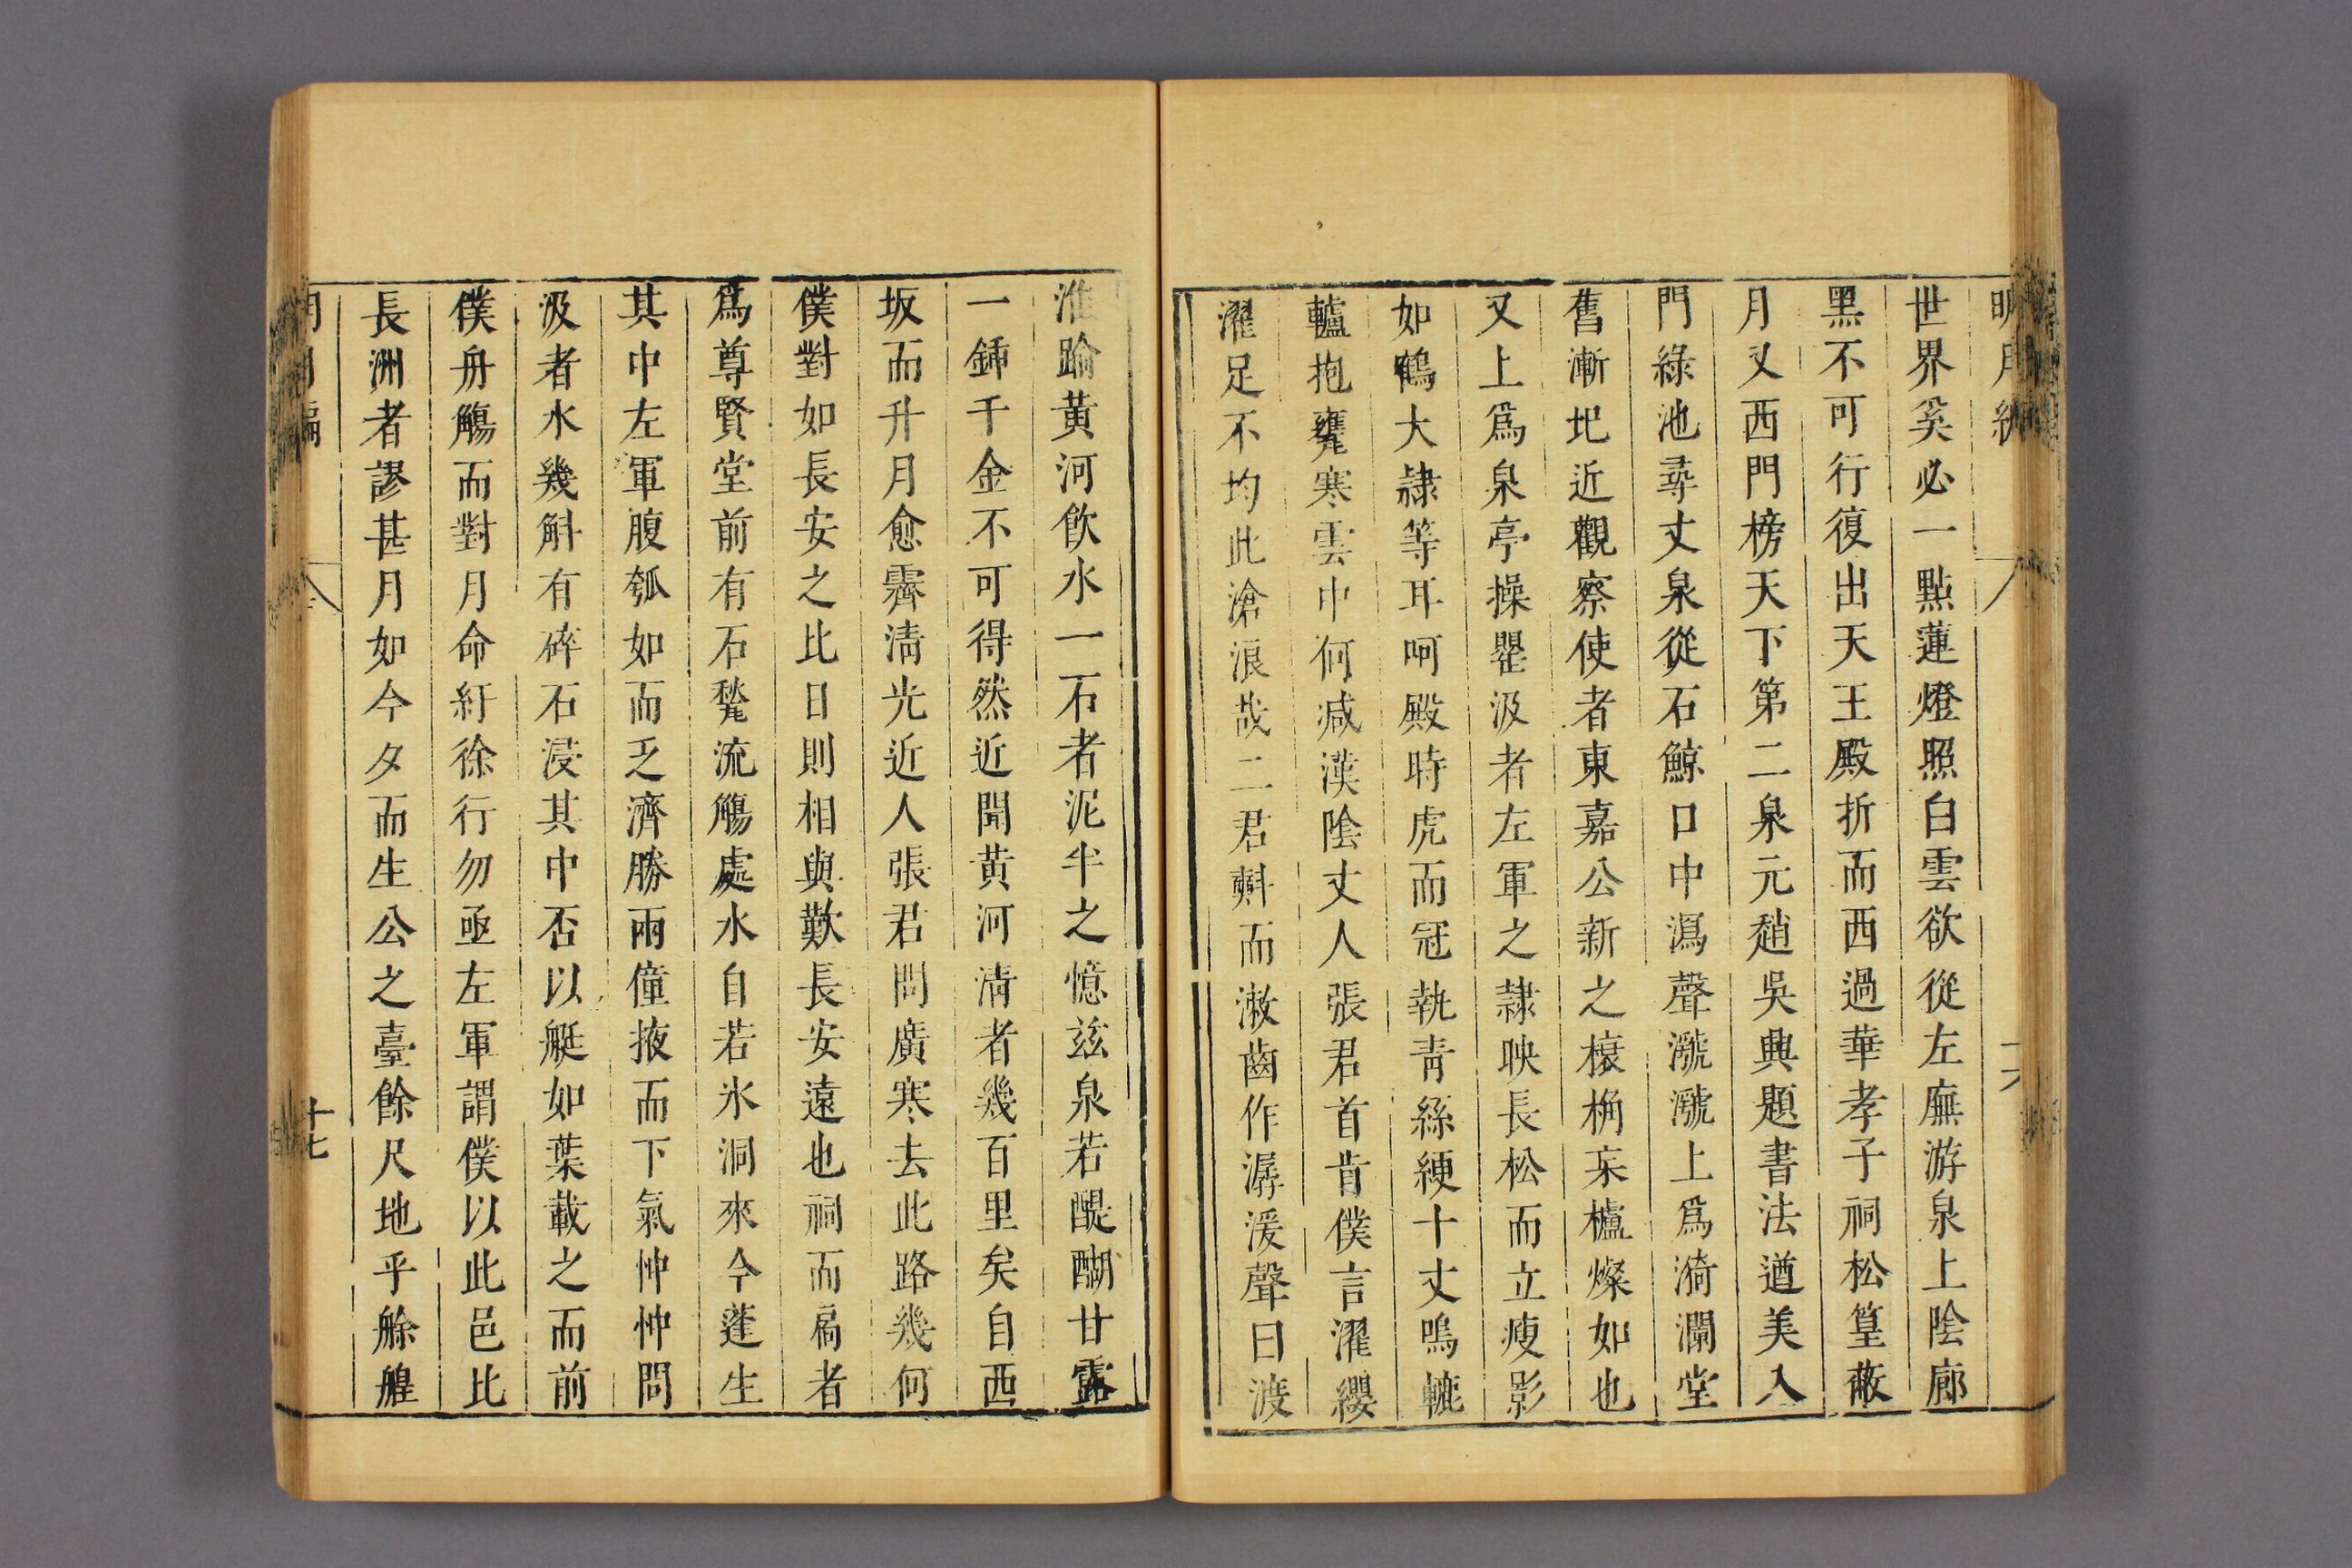 明月編
世界奚必一點蓮燈照白雲欲從左廡游泉上陰廊
黑不可行復出天王殿折而西過華孝子祠松篁蔽
月又西門榜天下第二泉元趙吳興題書法遒美入
門綠池尋丈泉從石鯨口中瀉聲㶁㶁上爲漪瀾堂
舊漸圮近觀察使者東嘉公新之榱桷宋櫨燦如也
又上爲泉亭操罌汲者左軍之隷映長松而立瘦影
如鶴大隷等耳呵殿時虎而冠執靑絲綆十丈鳴轆
轤抱甕寒雲中何减漢陰丈人張君首肯僕言濯纓
濯足不均此滄浪哉二君㪺而漱齒作潺湲聲曰渡
淮踰黃河飮水一石者泥半之憶玆泉若醍醐甘露
一鍾千金不可得然近聞黃河淸者幾百里矣自西
坂而升月愈霽淸光近人張君問廣寒去此路幾何
僕對如長安之比日則相與歎長安遠也祠而扃者
爲尊賢堂前有石甃流觴處水自若氷洞來今蓬生
其中左軍腹瓠如而乏濟勝兩僮掖而下氣忡忡問
汲者水幾斛有碎石浸其中否以艇如葉載之而前
僕舟觴而對月命紆徐行勿亟左軍謂僕以此邑比
長洲者謬甚月如今夕而生公之臺餘尺地乎艅艎
十七